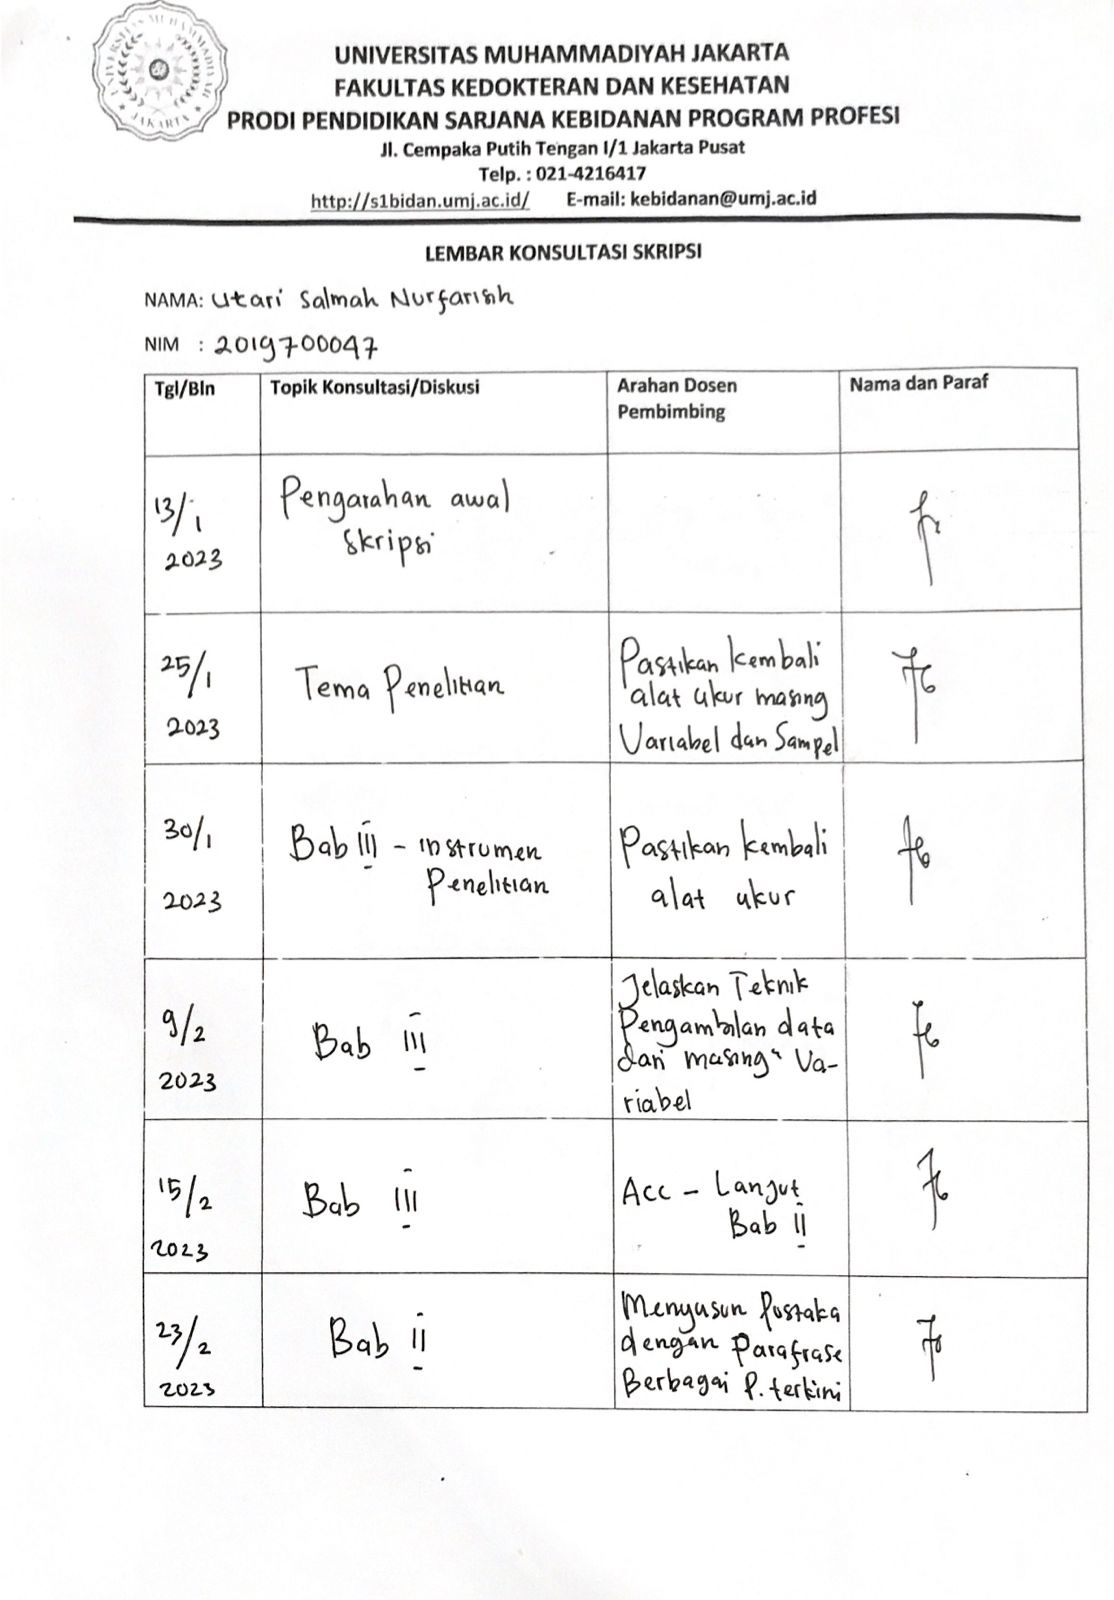 UNIVERSITAS MUHAMMADIYAH JAKARTA
FAKULTAS KEDOKTERAN DAN KESEHATAN
PRODI PENDIDIKAN SARJANA KEBIDANAN PROGRAM PROFESI
Jl. Cempaka Putih Tengan I/1 Jakarta Pusat
Telp. : 021-4216417
http://s1bidan.umj.ac.id/ E-mail: kebidanan@umj.ac.id
LEMBAR KONSULTASI SKRIPSI
NAMA: Utari Salmah Nurfarisih
NIM : 2019700047
Tgl/Bln Topik Konsultasi/Diskusi Arahan Dosen Nama dan Paraf
Pembimbing
13/1 Pengarahan awal
2023 skripsi
25/1 Tema Penelitian Pastikan kembali
alat ukur masing
2023 Variabel dan Sampel
30/1 Bab III - instrumen Pastikan kembali
2023 Penelitian alat ukur
Jelaskan Teknik
9/2 Bab III Pengambilan data
dari masing" Va-
2023 riabel
15/2 Bab III Acc - Lanjut
2023 Bab II
Menyusun Pustaka
23/2 Bab II dengan Parafrase
2023 Berbagai P. terkini